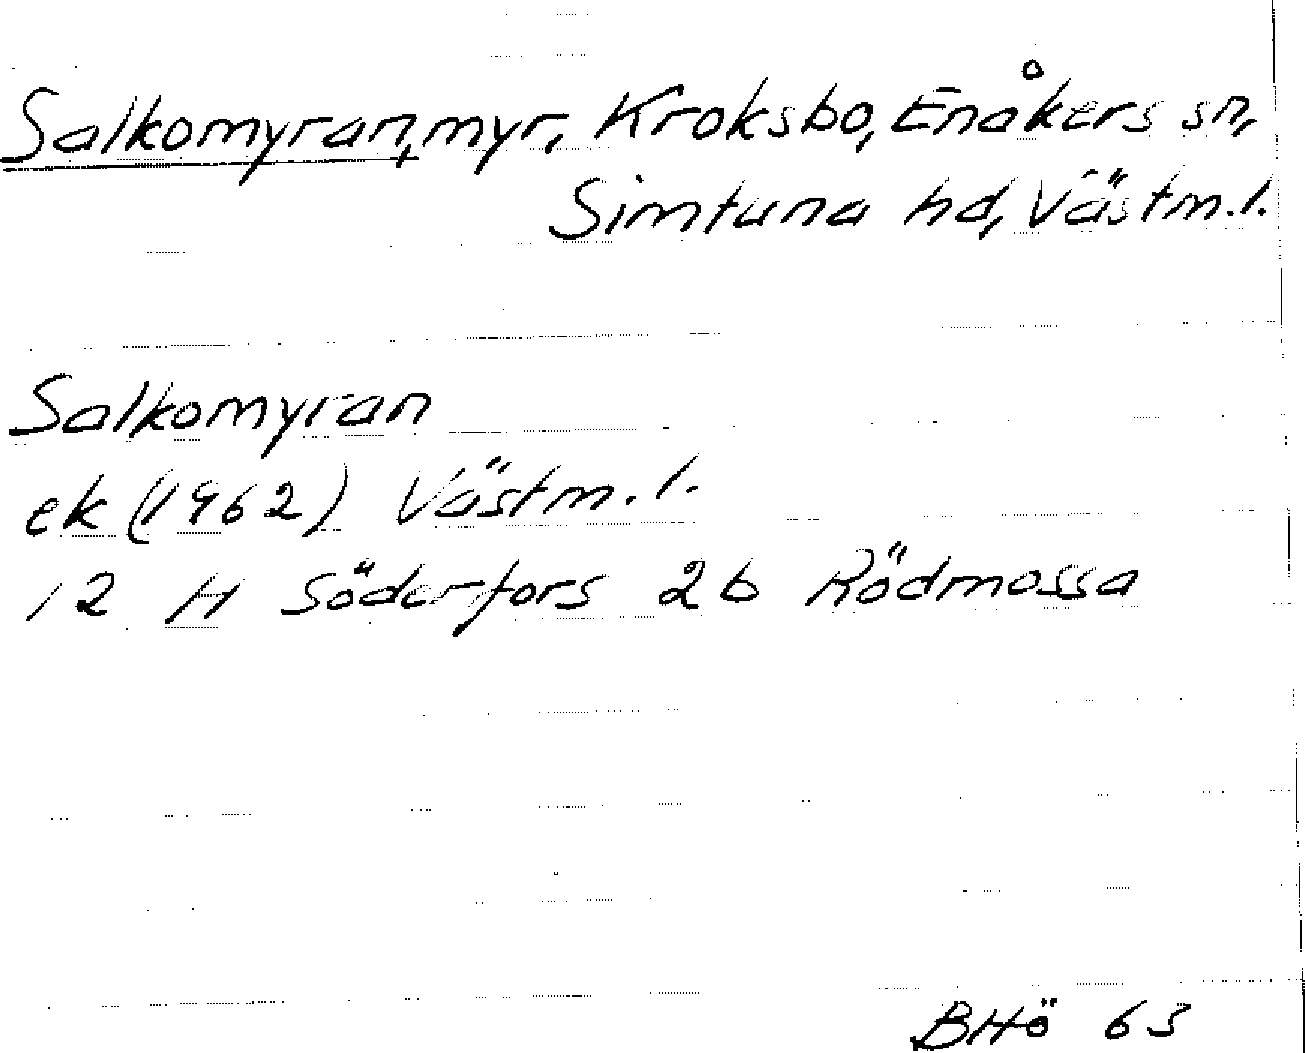 Salkomyran, myr, Kroksbo, Enåkers sn,
Simtuna hd, Västm. l.
Salkomyran
ek (1962) Västm. l.
12 H Söderfors 2b Rödmossa
BHö 63